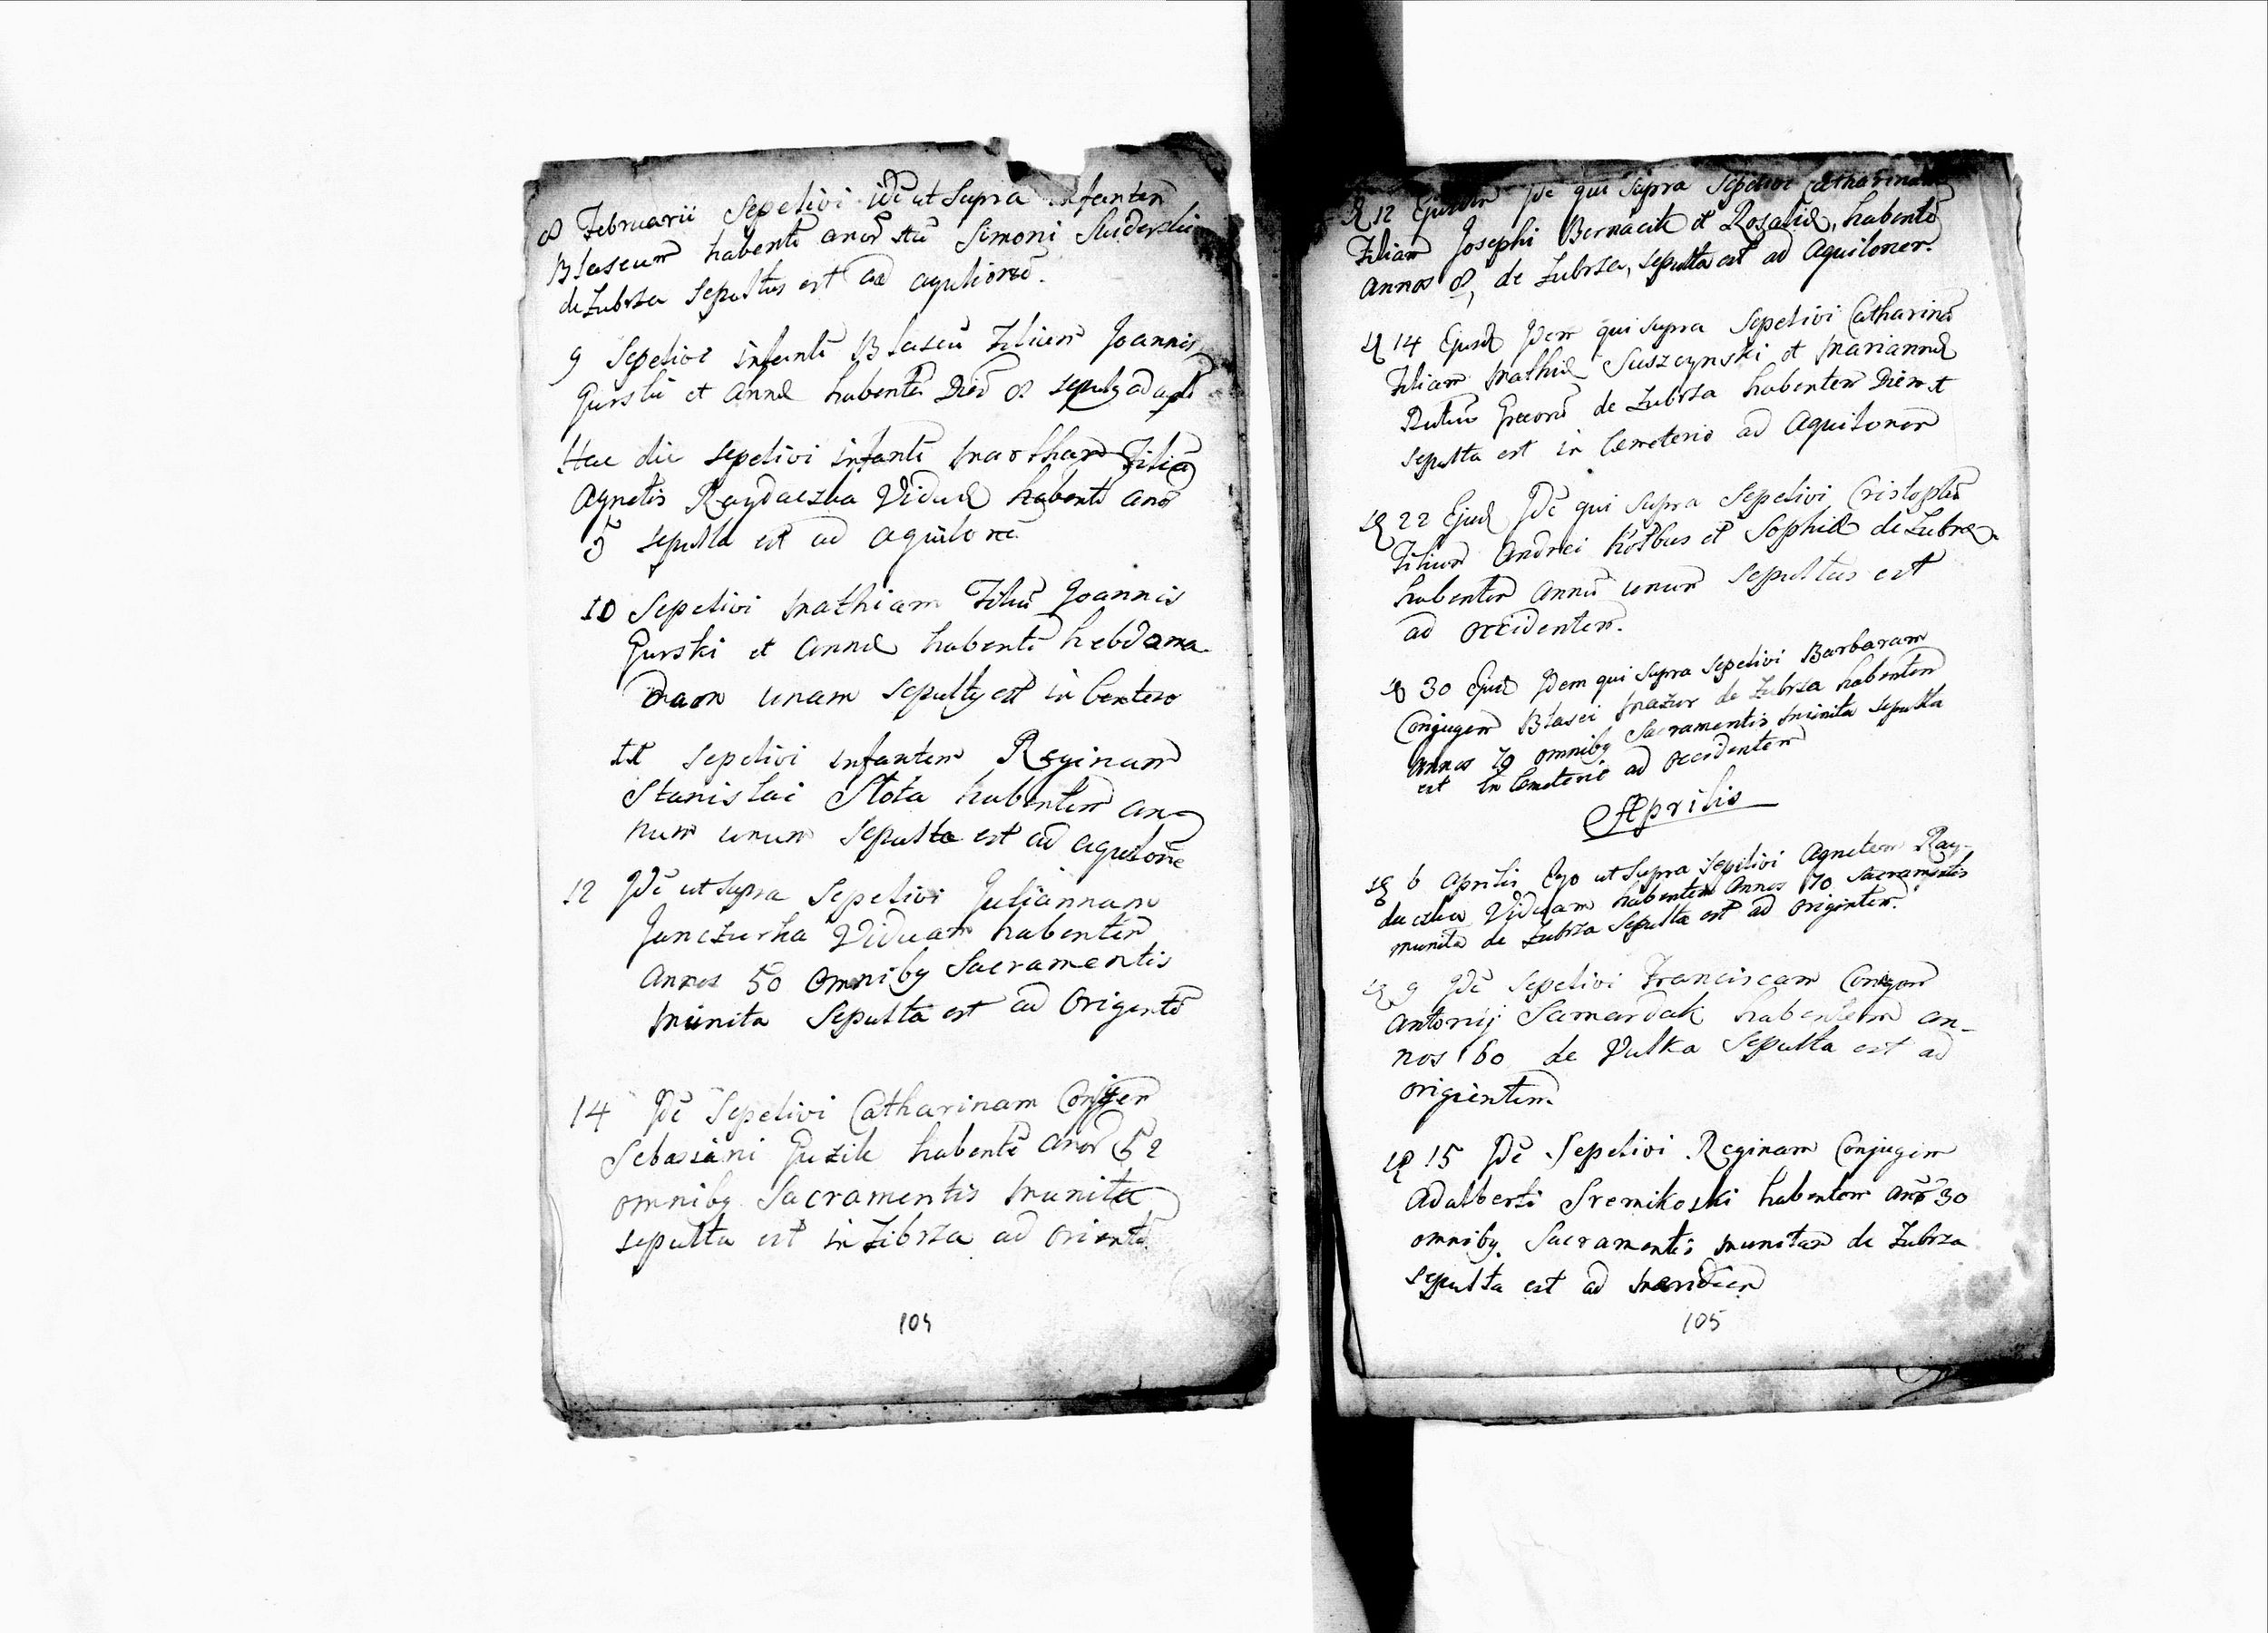 8 Februarii Sepelivi idē ut Supra infantem
Blaseum habentē anor Simoni
de Zubrza Sepultus est ad aquilonē.
9 Sepelivi infantē Blaseū Filium Joannis
Gurski et Annæ habentē Diēs 8 sepultg ad aql
Hac die sepelivi infantē Martham Filiā
Agnetis Raydaczka Viduæ habentē anos
5 sepulta est ad aquilonē
10 Sepelivi Mathiam Filiū Joannis
Gurski et Annæ habentē hebdoma
dam unam sepultg est in
11 sepelivi infantem Reginam
Stanislai Slota habentem an
num unum sepulta est ad aquilonē
12 Jdē ut Supra Sepelivi Juliannam
Janczurka Viduam habentem
Annos 50 omnibg Sacramentis
Munita Sepulta est ad Origentē
14 Jdē Sepelivi Catharinam Conjgem
Sebasiani Guzik habentē anos 52
omnibg Sacramentis Munita
sepulta est in Zibrza ad orientē
104
12 Ejusdem Jdē qui Supra Sepelivi Catharinam
Filiam Josephi Bernacik et Rosaliæ, habentē
annos 8, de Zubrza, sepulta est ad Aquilonem.
14 Ejusd Jdem qui supra Sepelivi Catharinā
Filiam Mathiæ Suszczynski et Mariannæ
de Zubrza habentem Diem 1
sepulta est in Cemeterio ad Aquilonem
22 Ejusd Jdē qui supra Sepelivi Cristophū
Filium Andrei et Sophiæ de Zubrza
habentem annū unum Sepultus est
ad occidentem.
30 Ejusd Jdem qui supra sepelivi Barbaram
Conjugem Blasei Mazur de Zubrza habentem
Annos 70 omnibg Sacramentis Munita sepulta
est in Cemeterio ad occidentem
Aprilis
6 Aprilis Ego ut Supra Sepelivi Agnetem Ray-
daczka Viduam habentem Annos 70 Sacramentis
munita de Zubrza Sepulta est ad Origintem.
9 Jdē Sepelivi Franciscam Conjgem
Antonij Samardak habentem an-
nos 60 de Vulka Sepulta est ad
origientem.
15 Jdē Sepelivi Reginam Conjugem
Adalberti Sremikoski habentem anō 30
omnibg Sacramentis munitam de Zubrza
sepulta est ad Meridiem
105